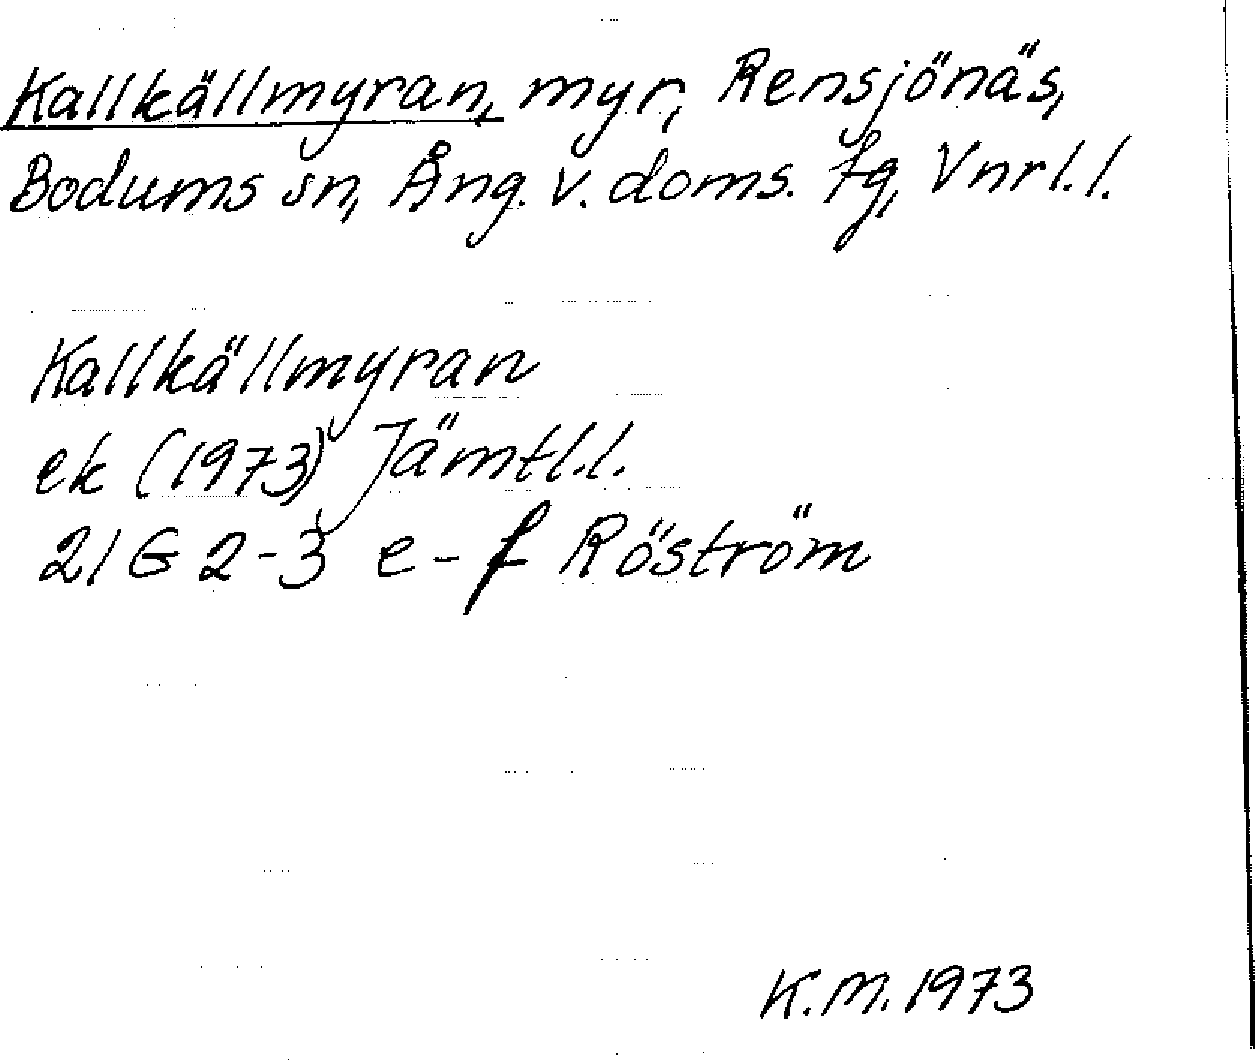 Kallkällmyran, myr, Rensjönäs,
Bodums sn, Ång. v. doms. fg, Vnrl.l.
Kallkällmyran
ek (1973) Jämtl.l.
21G 2-3 e-f Röström
K.M. 1973